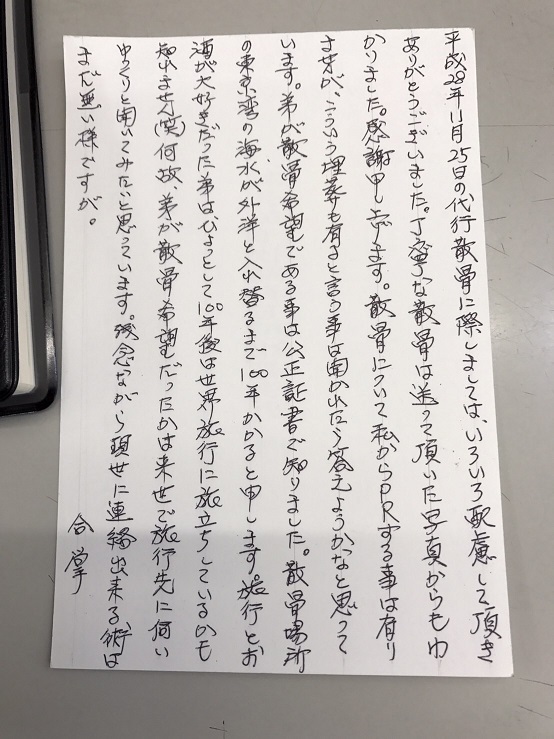 平成28年11月25日の代行散骨に際しましては、いろいろ配慮して頂き
ありがとうございました。丁寧な散骨は送って頂いた写真からもわ
かりました。感謝申し上げます。散骨について私からPRする事は有り
ませが、こういう埋葬も有ると言う事は聞かれたら答えようかなと思って
います。弟が散骨希望である事は公正証書で知りました。散骨場所
の東京湾の海水が外洋と入れ替るまで100年かかると申します旅行とお
酒が大好きだった弟はひょっとして100年後は世界旅行に旅立ちしているかも
知れませ(笑)何故、弟が散骨希望だったかは来世で旅行先に伺い
ゆっくりと聞いてみたいと思っています。残念ながら現世に連絡出来る術は
まだ無い様ですが。
合掌